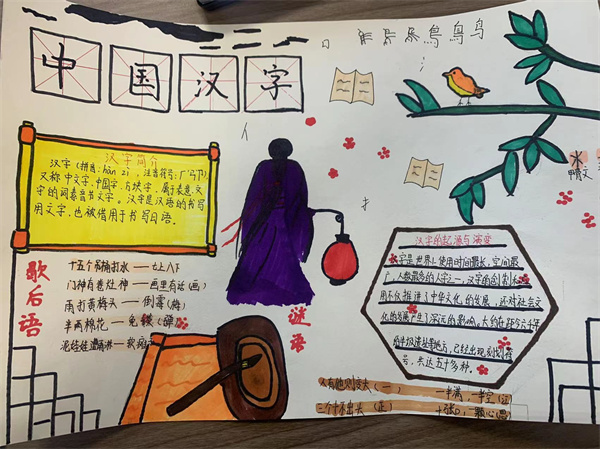 中国汉字
汉字简介
汉字（拼音：hàn zì，注音符号：ㄏㄢˋㄗˋ）
又称中文字、中国字、方块字，属于表意文
字的词素音节文字。汉字是汉语的书写
用文字，也被借用于书写日语。
歇后语
十五个吊桶打水——七上八下
门神有卷灶神——画里有话（画）
雨打黄梅头——倒霉（梅）
半两棉花——免
谜语
汉字的起源与演变
字是世界上使用时间最长，空间最
广，人数最多的文字之一，汉字的创制和应
用不仅推进了中华文化的发展，还对社会文
化的发展产生了深远的影响，大约在距今六千年
已经出现刻划符
号，共达五十多种。
水
甲骨文
人有他则变大（一）
一半满，一半空
三个十不出头